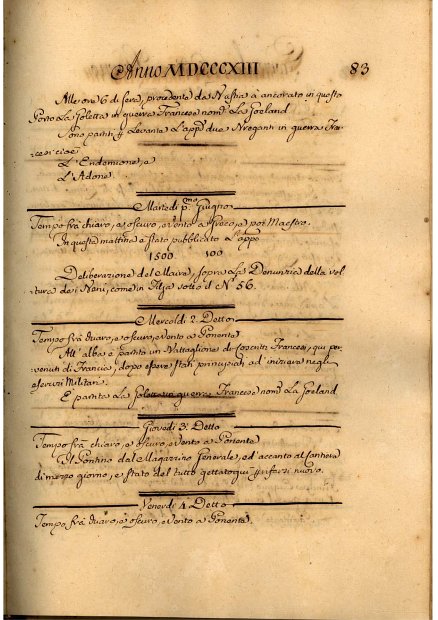 Anno MDCCCXIII 83
Alle ore 6 di sera, procedente da Nastia à ancorato in questo
Porto La Goletta in guerra Francese nom.ª La Goeland
Sono partiti p Levante L'app.e due Nreganti in guerra Fra-
cesi cioè
L'Endemione, e
L'Adone.
Martedi p.mo Giugno
Tempo frà chiaro, e oscuro, e vento a Greco, e poi Maestro.
In questa mattina è stato pubblicato L'app.e
1500 100
Deliberazione del Maire, sopra La Denunzia della vol-
tura de i Neni, come in Filza sotto il N.° 56.
Mercoldi 2. Detto
Tempo frà chiaro, e oscuro, e vento a Ponente
All'alba è partito un Battaglione di Coscritti Francesi, qui per-
venuti di Francia, dopo essere stati principiati ad iniziare negli
esercizi Militari.
E partita La Goletta in guerra Francese nom.ª La Goeland
Giovedi 3. Detto
Tempo frà chiaro, e oscuro, e vento a Ponente
Il Pontino del Magazzino Generale, ed accanto al
di mezzo giorno, e stato del tutto gettato qui p farsi nuovo.
Venerdi 4 Detto
Tempo frà chiaro, e oscuro, e vento a Ponente.